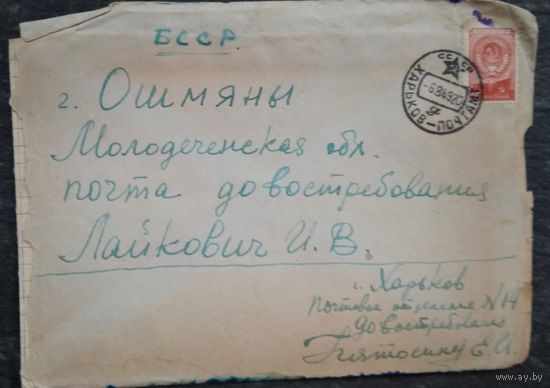 БССР.
г. Ошмяны
Молодеченская обл.
почта до востребования
Лайкович И. В.
г. Харьков
Почтовое отделение N 14
До востребования
Е. И.
СССР
ХАРЬКОВ-ПОЧТАМТ
www.ay.by